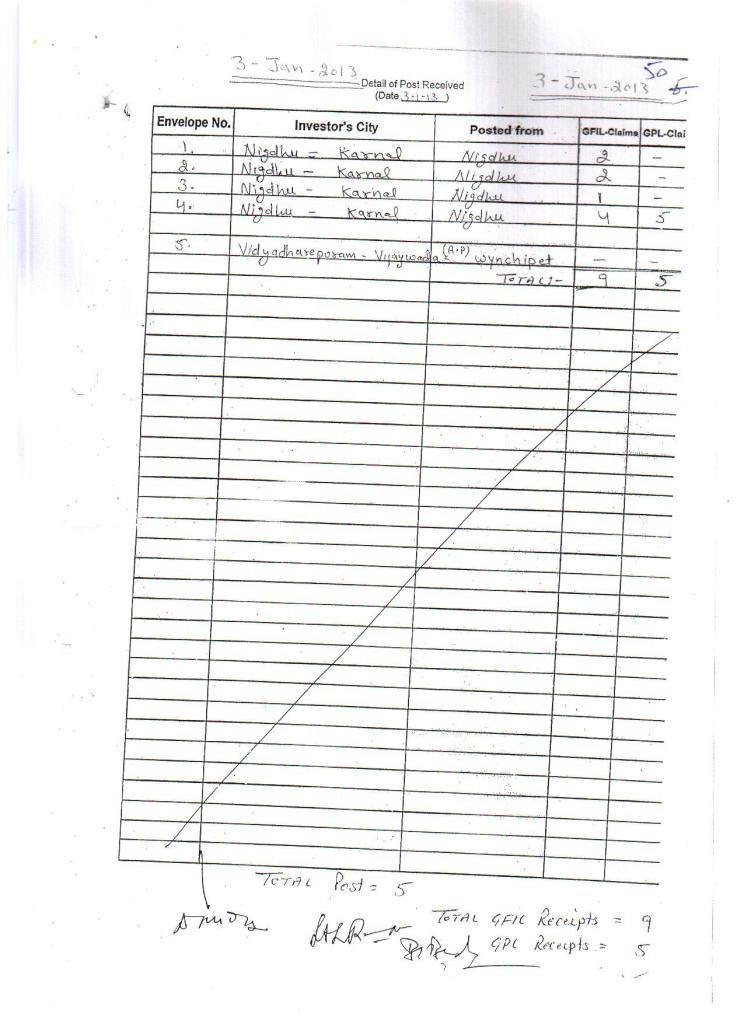 50
3-Jan-2013 3-Jan-2013
Detail of Post Received
(Date 3-1-13)
Envelope No. Investor's City Posted from GFIL-Claims GPL-Clai
1. Nigdhu = Karnal Nigdhu 2 -
2. Nigdhu - Karnal Nigdhu 2 -
3. Nigdhu - Karnal Nigdhu 1 -
4. Nigdhu - Karnal Nigdhu 4 5
5. Vidyadharepuram - Vijaywada (A.P) wynchipet - -
TOTAL:- 9 5
TOTAL Post = 5
TOTAL GFIL Receipts = 9
GPL Receipts = 5